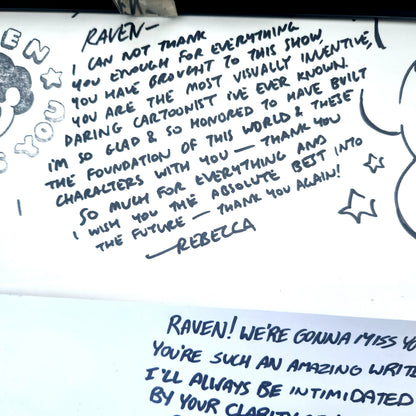 RAVEN—
I CAN NOT THANK
YOU ENOUGH FOR EVERYTHING
YOU HAVE BROUGHT TO THIS SHOW,
YOU ARE THE MOST VISUALLY INVENTIVE,
DARING CARTOONIST I'VE EVER KNOWN.
I'M SO GLAD & SO HONORED TO HAVE BUILT
THE FOUNDATION OF THIS WORLD & THESE
CHARACTERS WITH YOU — THANK YOU
SO MUCH FOR EVERYTHING AND
I WISH YOU THE ABSOLUTE BEST INTO
THE FUTURE — THANK YOU AGAIN!
—REBECCA
RAVEN! WE'RE GONNA MISS YO
YOU'RE SUCH AN AMAZING WRITE
I'LL ALWAYS BE INTIMIDATED
BY YOUR CLARITY